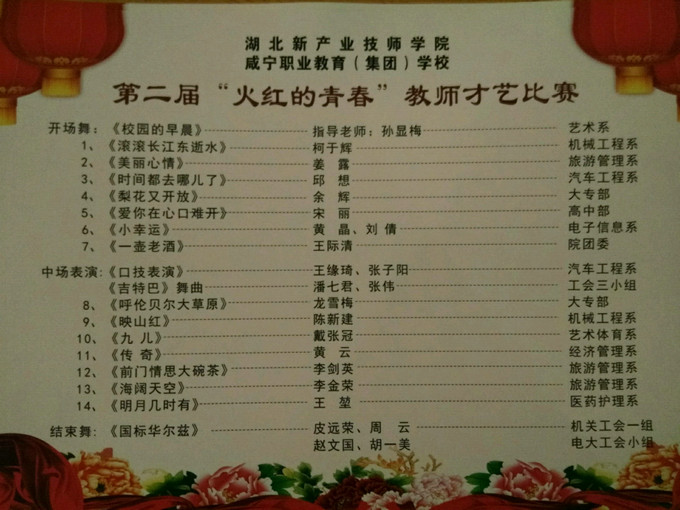 湖北新产业技师学院
咸宁职业教育（集团）学校
第二届“火红的青春”教师才艺比赛
开场舞：《校园的早晨》 指导老师：孙显梅 艺术系
1、《滚滚长江东逝水》 柯于辉 机械工程系
2、《美丽心情》 姜 露 旅游管理系
3、《时间都去哪儿了》 邱 想 汽车工程系
4、《梨花又开放》 余 辉 大专部
5、《爱你在心口难开》 宋 丽 高中部
6、《小幸运》 黄 晶、刘 倩 电子信息系
7、《一壶老酒》 王际清 院团委
中场表演:《口技表演》 王缘琦、张子阳 汽车工程系
《吉特巴》舞曲 潘七君、张伟 工会三小组
8、《呼伦贝尔大草原》 龙雪梅 大专部
9、《映山红》 陈新建 机械工程系
10、《九 儿》 戴张冠 艺术体育系
11、《传 奇》 黄 云 经济管理系
12、《前门情思大碗茶》 李剑英 旅游管理系
13、《海阔天空》 李金荣 旅游管理系
14、《明月几时有》 王 堃 医药护理系
结束舞：《国标华尔兹》 皮远荣、周 云 机关工会一组
赵文国、胡一美 电大工会小组